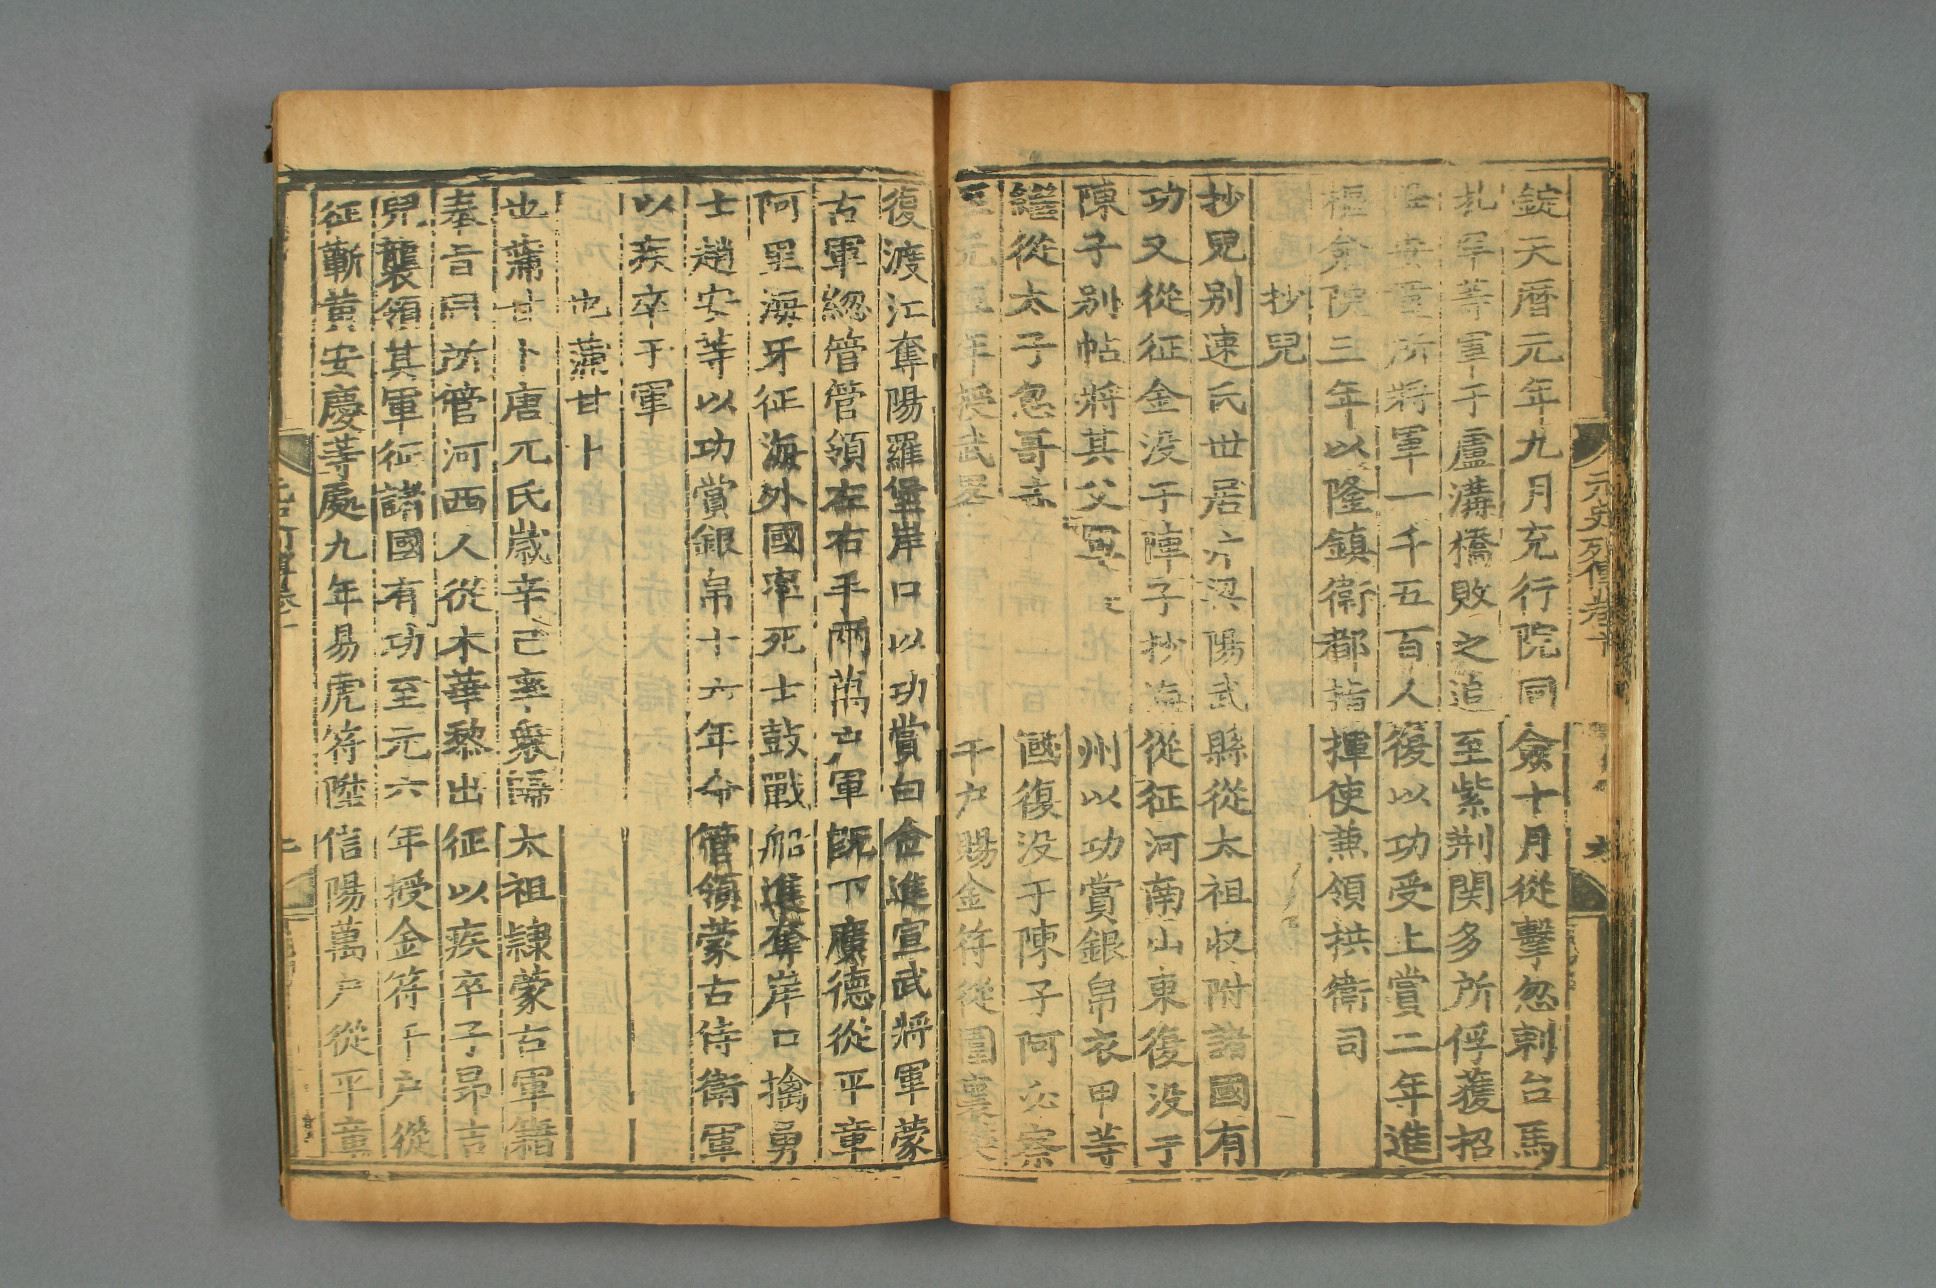 元史列傳卷十
錠天曆元年九月充行院同僉十月從擊忽剌台馬
扎罕等軍于盧溝橋敗之追至紫荆関多所俘獲招
安童所將軍一千五百人復以功受上賞二年進
樞僉院三年以隆鎮衛都指揮使兼領拱衛司
抄兒
抄兒别速氏世居汴梁陽武縣從太祖收附諸國有
功又從征金没于陣子抄海從征河南山東復没于
陳子别帖將其父軍州以功賞銀帛衣甲等
繼從太子忽哥赤國復没于陳子阿必察
至元五年授武畧千戸賜金符從圍襄樊
復渡江奪陽羅堡岸口以功賞白金進宣武將軍蒙
古軍緫管管領左右手兩萬戸軍既下廣德從平章
阿里海牙征海外國率死士鼓戰船進奪岸口擒勇
士趙安等以功賞銀帛十六年命管領蒙古侍衛軍
以疾卒于軍
也蒲甘卜
也蒲甘卜唐兀氏歲辛巳率衆歸太祖隷蒙古軍籍
奉旨同所管河西人從木華黎出征以疾卒子昂吉
兒襲領其軍征諸國有功至元六年授金符千戸從
征蘄黄安慶等處九年易虎符陞信陽萬戸從平章